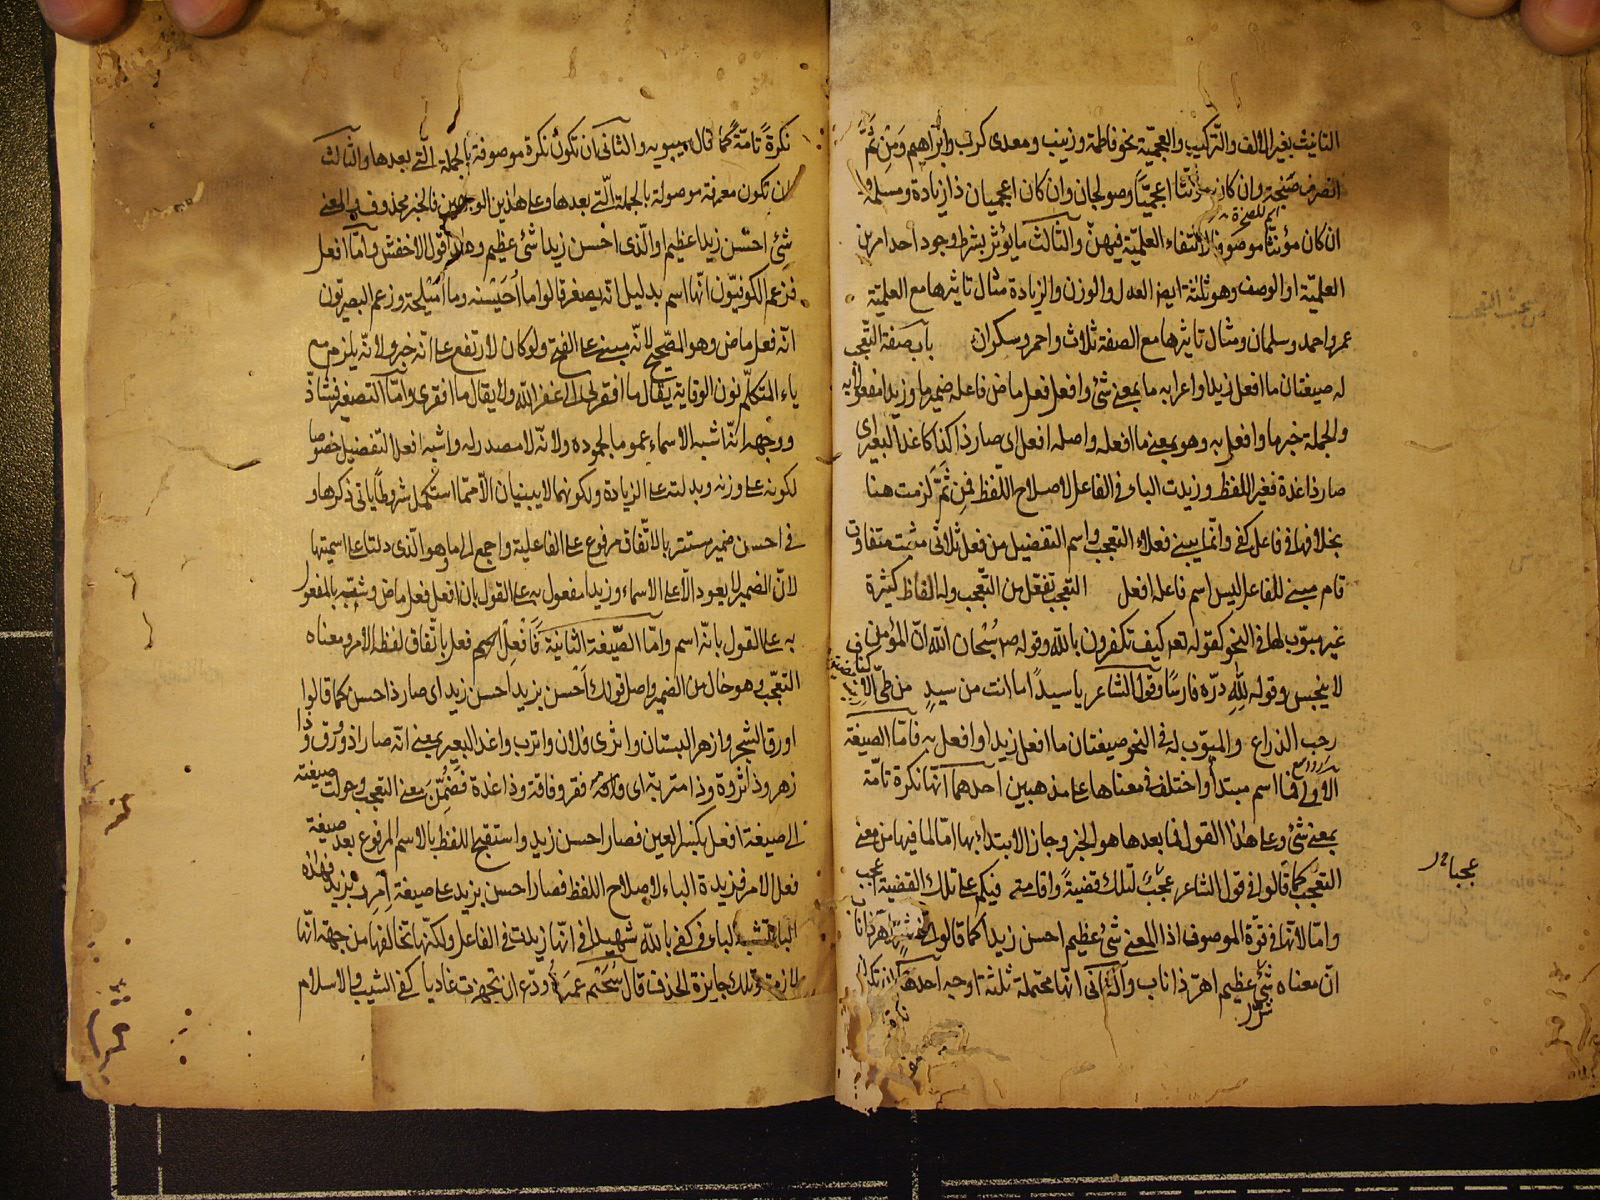 التانيث بغير الالف والتركيب والعجمية نحو فاطمة وزينب ومعدى كرب وابراهيم ومن ثم
انصرف صنجة وان كان مؤنثا اعجميا وصولجان وان كان اعجميان ذا زيادة ومسلمة وا
ان كان مؤنثا موصوفا لانتفاء العلمية فيهن والثالث ما يؤثر بشرط وجود احد امرين
العلمية او الوصف وهو ثلثة ايضا العدل والوزن والزيادة مثال تاثيرها مع العلمية
عمر واحمد وسلمان ومثال تاثيرها مع الصفة ثلاث واحمر وسكران باب صفة التعجب
له صيغتان ما افعل زيدا واعرابه ما بمعنى شئ وافعل فعل ماض فاعله ضمير ما وزيدا مفعول به
والجملة خبر ما وافعل به وهو بمعنى ما افعله واصله افعل اى صار ذا كذا كاغد البعير اى
صار ذا غدة فغير اللفظ وزيدت الباء فى الفاعل لاصلاح اللفظ فمن ثم لزمت هنا
بخلافها فى فاعل كفى وانما يبنى فعلاء التعجب واسم التفضيل من فعل ثلاثى مثبت متفاوت
تام مبنى للفاعل ليس اسم فاعله افعل التعجب تفعل من التعجب وله الفاظ كثيرة
غير مبوب لها فى النحو كقوله تعه كيف تكفرون بالله وقوله ص سبحان الله ان المؤمن
لا ينجس وقوله لله دره فارسا وقول الشاعر يا سيدا اما انت من سيد
رحب الذراع والمبوب له فى النحو صيغتان ما افعل زيدا وافعل به فاما الصيغة
الاولى فما اسم مبتدأ واختلف فى معناها على مذهبين احدهما انها نكرة تامة
بمعنى شئ وعلى هذا القول فما بعدها هو الخبر وجاز الابتداء بها اما لما فيها من معنى
التعجب كما قالوا فى قول الشاعر عجب لتلك قضية واقامتى فيكم على تلك القضية اعجب
واما لانها فى قوة الموصوف اذ المعنى شئ عظيم احسن زيدا كما قالوا فى شر اهر ذا ناب
ان معناه شئ عظيم اهر ذا ناب والثانى انها محتملة ثلثة اوجه احدها
شر
عجبا
نكرة تامة كما قال سيبويه والثانى ان تكون نكرة موصوفة بالجملة التى بعدها والثالث
ان تكون معرفة موصولة بالجملة التى بعدها وعلى هذين الوجهين فالخبر محذوف والمعنى
شئ احسن زيدا عظيم او الذى احسن زيدا شئ عظيم وهذا قول الاخفش واما افعل
فزعم الكوفيون انها اسم بدليل انه يصغر قالوا ما احيسنه وما امليحه وزعم البصريون
انه فعل ماض وهو الصحيح لانه مبنى على الفتح ولو كان لارتفع على انه خبر ولانه يلزم مع
ياء المتكلم نون الوقاية يقال ما افقرنى الى عفو الله ولا يقال ما افقرى واما التصغير فشاذ
ووجهه انه اشبه الاسماء عموما بجموده ولانه لا مصدر له واشبه افعل التفضيل خصوصا
لكونه على وزنه وبدلته على الزيادة ولكونهما لا يبنيان الا مما استكمل شروطا ياتى ذكرها و
فى احسن ضمير مستتر بالاتفاق مرفوع على الفاعلية راجع الى ما وهو الذى دلنا على اسميتها
لان الضمير لا يعود الا على الاسماء وزيدا مفعول به على القول بان افعل فعل ماض ومشبه بالمفعول
به على القول بانه اسم واما الصيغة الثانية فافعل فعل باتفاق لفظه الامر ومعناه
التعجب وهو خال من الضمير واصل قولك احسن بزيد احسن زيد اى صار ذا حسن كما قالوا
اورق الشجر وازهر البستان واثرى فلان واترب واغد البعير بمعنى انه صار ذا ورق وذا
زهر وذا ثروة وذا متربة اى فقر وفاقة وذا غدة فضمن معنى التعجب وحولت صيغته
الى صيغة افعل بكسر العين فصار احسن زيد واستقبح اللفظ بالاسم المرفوع بعد صيغة
فعل الامر فزيدة الباء لاصلاح اللفظ فصار احسن بزيد على صيغة امرر بزيد فهذه
الباء تشبه الباء فى كفى بالله شهيدا فى انها زيدت فى الفاعل ولكنها تخالفها من جهة انها
لازمة وتلك جايزة الحذف قال سحيم عميرة ودع ان تجهزت غاديا كفى الشيب والاسلام